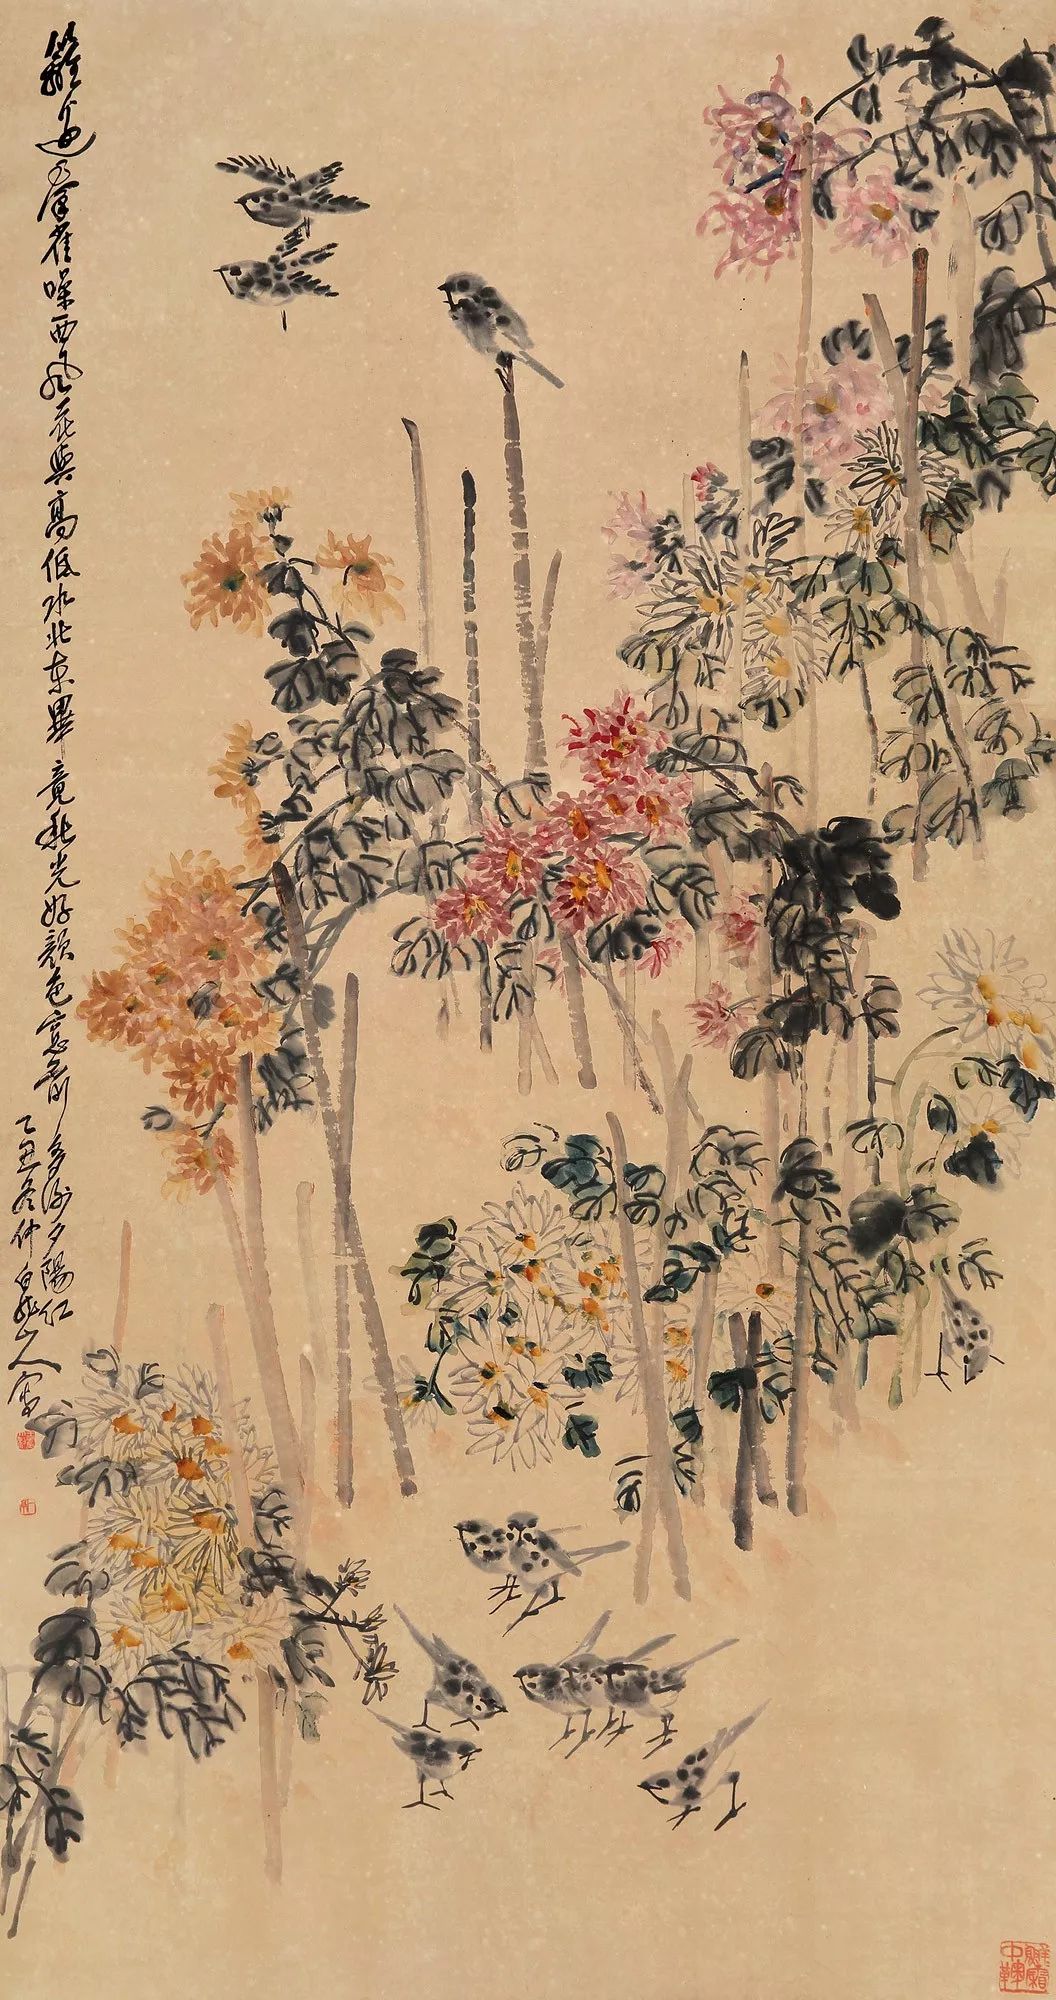 籬邊羣雀噪西風花與高低水北東畢竟秋光好顏色窓前多謝夕陽紅
乙丑冬仲白龍山人寫